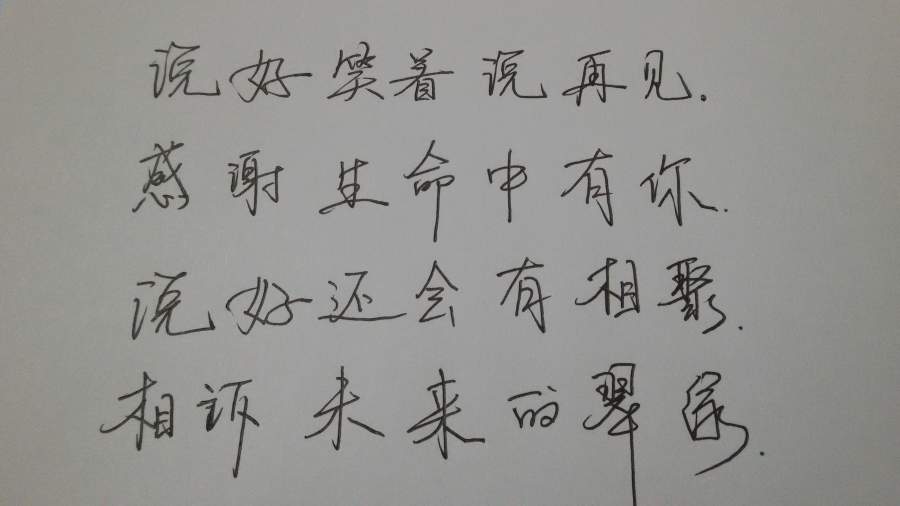 说好笑着说再见.
感谢生命中有你.
说好还会有相聚.
相诉未来的翠绿.